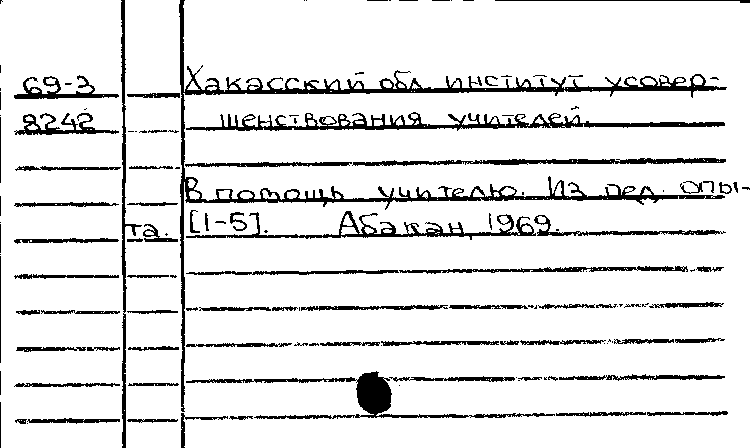 69-3 Хакасский обл. институт усовер-
8242 шенствования учителей.
В помощь учителю. Из пед. опы-
та. [1-5]. Абакан, 1969.